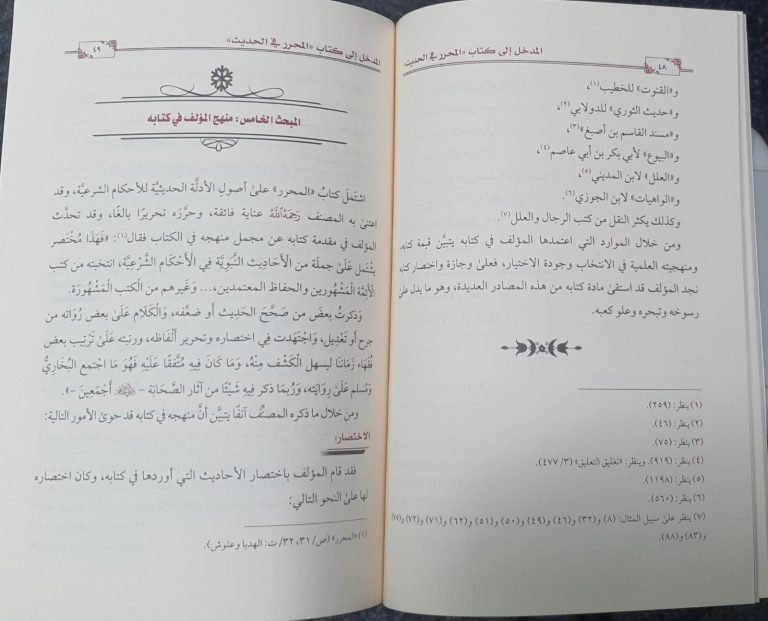 المدخل إلى كتاب «المحرر في الحديث»
٤٨
و«القنوت» للخطيب(١)،
و«حديث الثوري» للدولابي(٢)،
و«مسند القاسم بن أصبغ»(٣)،
و«البيوع» لأبي بكر بن أبي عاصم(٤)،
و«العلل» لابن المديني(٥)،
و«الواهيات» لابن الجوزي(٦).
وكذلك يكثر النقل من كتب الرجال والعلل(٧).
ومن خلال الموارد التي اعتمدها المؤلف في كتابه يتبيَّن قيمة كتابه،
ومنهجيته العلمية في الانتخاب وجودة الاختيار، فعلىٰ وجازة واختصار كتابه
نجد المؤلف قد استقىٰ مادة كتابه من هذه المصادر العديدة، وهو ما يدل علىٰ
رسوخه وتبحره وعلو كعبه.
(١) ينظر: (٢٥٩).
(٢) ينظر: (٤٦).
(٣) ينظر: (٧٥).
(٤) ينظر: (٩١٩). وينظر: «تغليق التعليق» (٣/ ٤٧٧).
(٥) ينظر: (١١٩٨).
(٦) ينظر: (٥٦٠).
(٧) ينظر علىٰ سبيل المثال: (٨) و(٣٢) و(٤٦) و(٤٩) و(٥٠) و(٥١) و(٦٢) و(٧١) و(٧٢) و(٧٥)
و(٨٣) و(٨٨).
المدخل إلى كتاب «المحرر في الحديث»
٤٩
المبحث الخامس: منهج المؤلف في كتابه
اشتملَ كتابُ «المحرر» علىٰ أصولِ الأدلَّة الحديثيَّة للأحكام الشرعيَّة، وقد
اعتنىٰ به المصنف رَحِمَهُ ٱللَّهُ عناية فائقة، وحرَّره تحريرًا بالغًا، وقد تحدَّث
المؤلف في مقدمة كتابه عن مجمل منهجه في الكتاب فقال(١): «فَهَذَا مُخْتَصر
يشْتَمل عَلَىٰ جملَة من الْأَحَادِيث النَّبَوِيَّة فِي الْأَحْكَام الشَّرْعِيَّة، انتخبته من كتب
الْأَئِمَّة الْمَشْهُورين والحفاظ المعتمدين،... وَغَيرهم من الْكتب الْمَشْهُورَة.
وَذكرتُ بعضَ من صَحَّحَ الحَدِيثَ أَو ضعَّفه، وَالْكَلَام عَلَىٰ بعض رُوَاته من
جرح أَو تَعْدِيل، وَاجْتَهَدت فِي اختصاره وتحرير أَلْفَاظه، ورتبته عَلَىٰ تَرْتِيب بعض
فُقَهَاء زَمَاننَا ليسهل الْكَشْف مِنْهُ، وَمَا كَانَ فِيهِ مُتَّفقًا عَلَيْهِ فَهُوَ مَا اجْتمع البُخَارِيُّ
وَمُسلم عَلَىٰ رِوَايَته، وَرُبمَا ذكر فِيهِ شَيْئًا من آثَار الصَّحَابَة - ﷺ أَجْمَعِينَ -».
ومن خلال ما ذكره المصنِّف آنفًا يتبيَّن أنَّ منهجه في كتابه قد حوىٰ الأمور التالية:
الاختصار:
فقد قام المؤلف باختصار الأحاديث التي أوردها في كتابه، وكان اختصاره
لها علىٰ النحو التالي:
(١) «المحرر» (ص/ ٣١، ٣٢/ ت: الهدبا وعلوش).